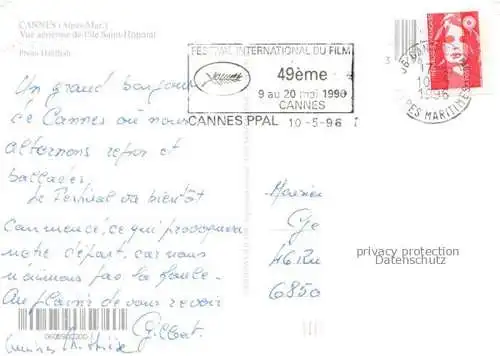 CANNES (Alpes-Mar.)
Vue aérienne de l'île Saint-Honorat
Photo
FESTIVAL INTERNATIONAL DU FILM
49ème
9 au 20 mai 1996
CANNES
CANNES PPAL 10-5-96
10-5
1996
PES MARITIMES
Un grand bonjour
de Cannes où nous
alternons repos et
ballades.
Le Festival va bientôt
commencer, ce qui provoquera
notre départ, car nous
n'aimons pas la foule.
Au plaisir de vous revoir
Gilbert
Monsieur
46 Ru
6850
privacy protection
Datenschutz